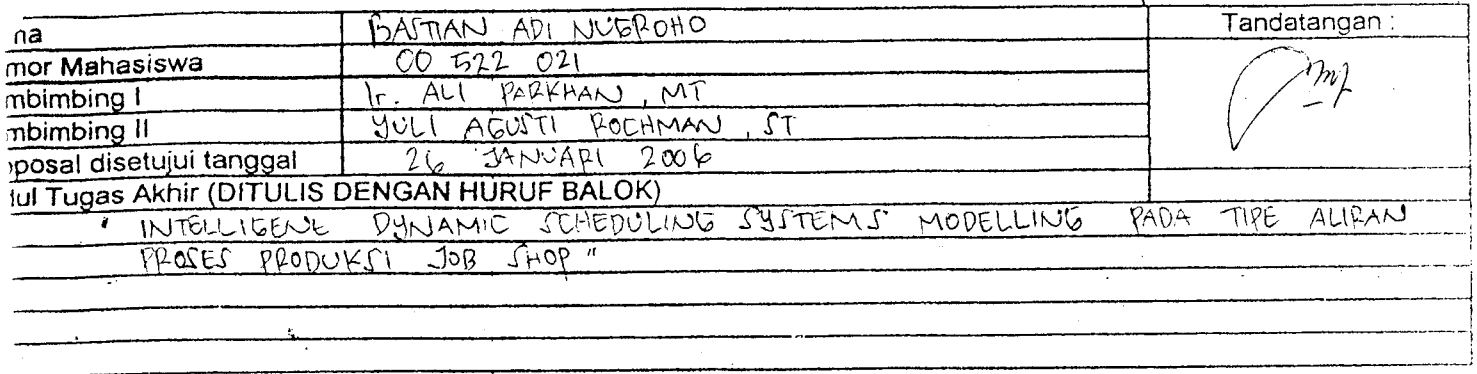 na BASTIAN ADI NUGROHO Tandatangan :
mor Mahasiswa 00 522 021
mbimbing I Ir. ALI PARKHAN, MT
mbimbing II YULI AGUSTI ROCHMAN, ST
posal disetujui tanggal 26 JANUARI 2006
ul Tugas Akhir (DITULIS DENGAN HURUF BALOK)
" INTELLIGENT DYNAMIC SCHEDULING SYSTEMS MODELLING PADA TIPE ALIRAN
PROSES PRODUKSI JOB SHOP "